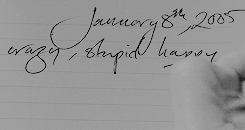 January 8th, 2005
crazy, stupid happy